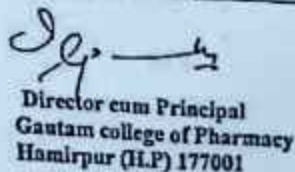 Director cum Principal
Gautam college of Pharmacy
Hamirpur (H.P) 177001